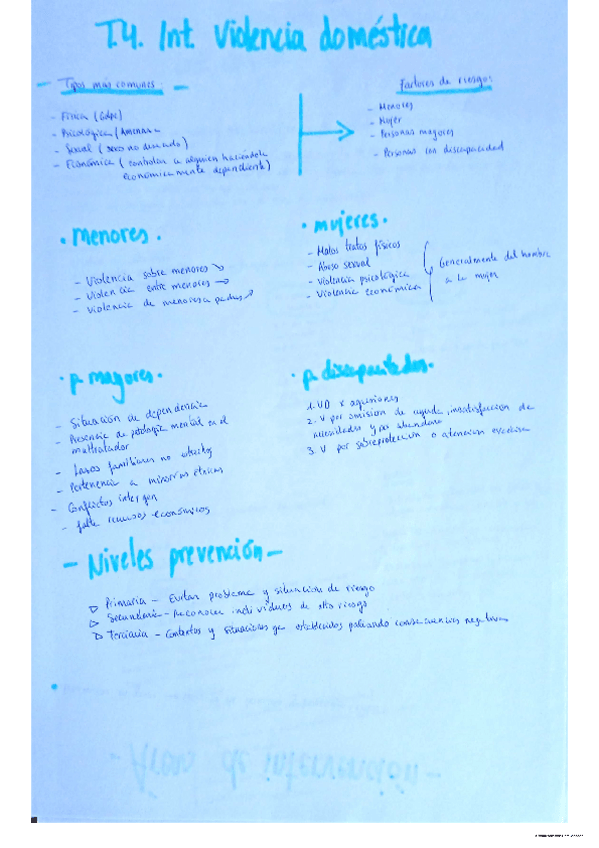 T.4. Int. Violencia doméstica
- Tipos más comunes: -
- Física (Golpe)
- Psicológica (Amenaza
- Sexual (sexo no deseado)
- Económica (controlar a alguien haciéndole
económicamente dependiente)
Factores de riesgo:
- Menores
- Mujer
- Personas mayores
- Personas con discapacidad
• Menores.
- Violencia sobre menores
- Violencia entre menores
- Violencia de menores a padres
• mujeres.
- Malos tratos físicos
- Abuso sexual
- Violencia psicológica
- Violencia económica
Generalmente del hombre
a la mujer
• p mayores.
- Situación de dependencia
- Presencia de patología mental en el
maltratador
- Lazos familiares no
- Pertenencia a minorías étnicas
- Conflictos intergen
- falta recursos económicos
• p discapacitados.
1. VD x agresiones
2. V por omisión de ayuda, insatisfacción de
necesidades y por abandono
3. V por sobreprotección o atención excesiva
- Niveles prevención -
▷ Primaria - Evitar problema y situación de riesgo
▷ Secundaria - Reconocer individuos de alto riesgo
▷ Terciaria - Contextos y situaciones ya establecidos paliando consecuencias negativas
- Área de intervención -